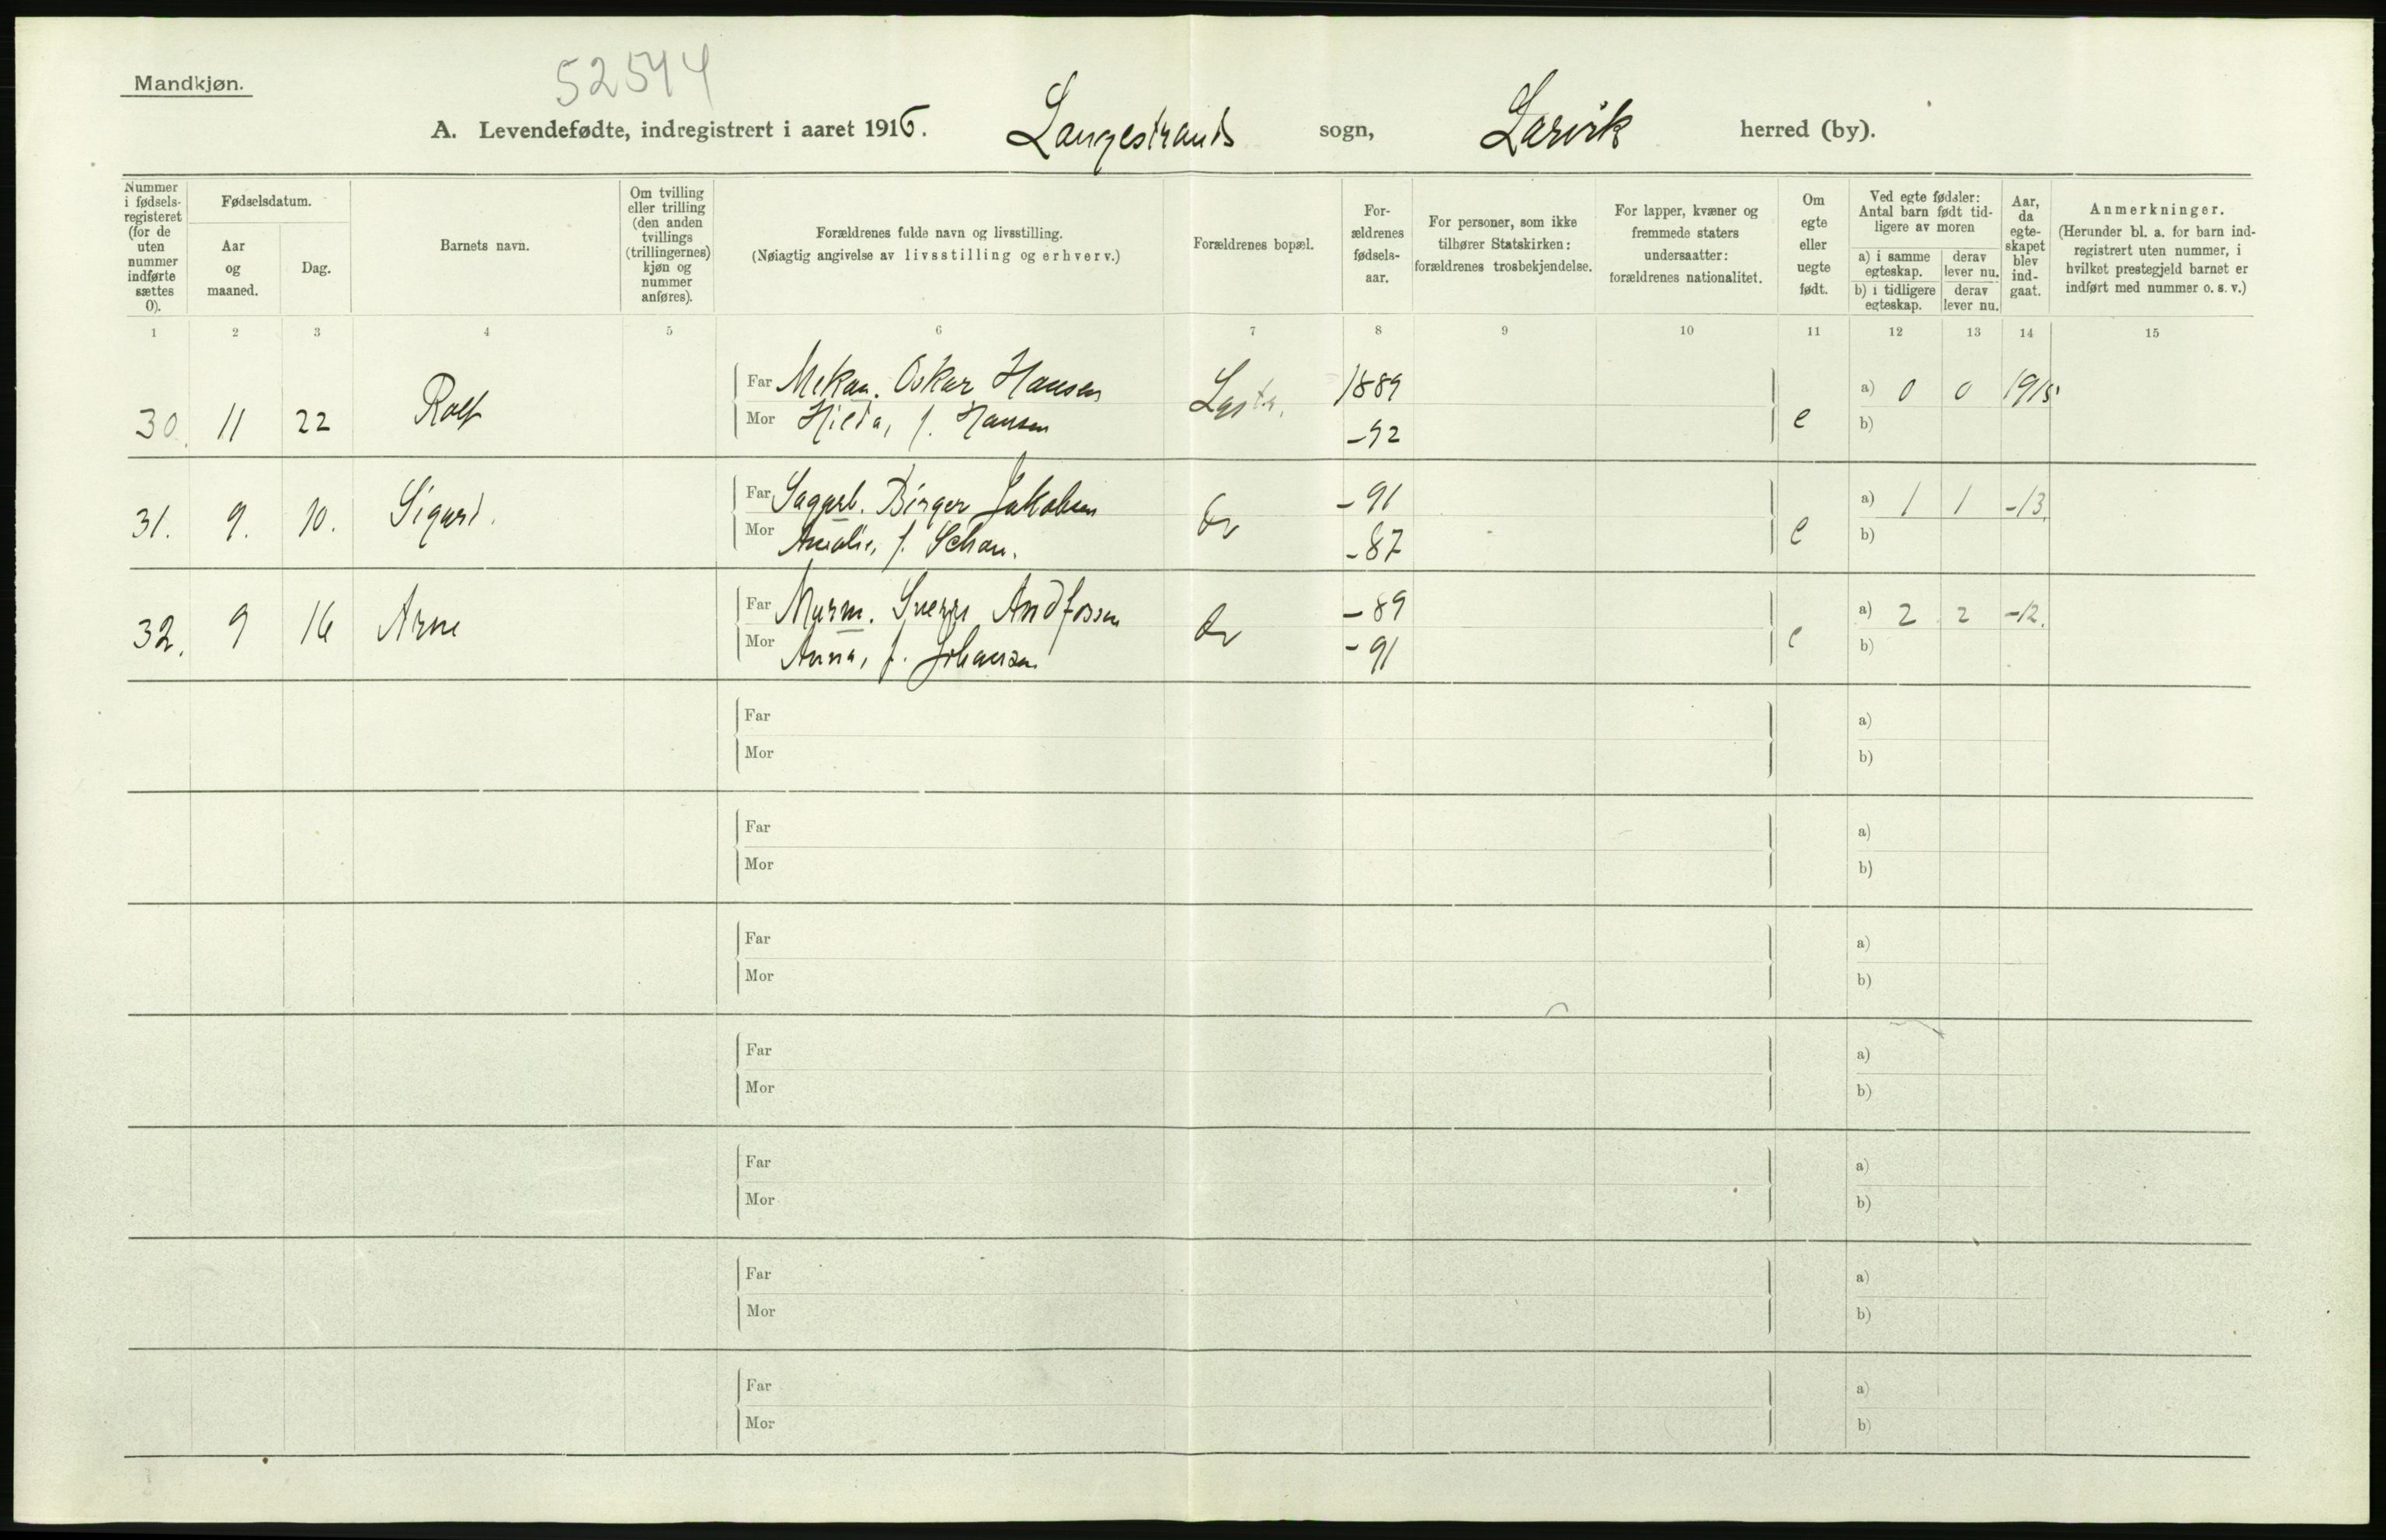 Mandkjøn.
52544
A. Levendefødte, indregistrert i aaret 1916. Langestrands sogn, Larvik herred (by).
Nummer i fødselsregisteret (for de uten nummer indførte sættes 0).
Fødselsdatum.
Aar og maaned.
Dag.
Barnets navn.
Om tvilling eller trilling (den anden tvillings (trillingernes) kjøn og nummer anføres).
Forældrenes fulde navn og livsstilling.
(Nøiagtig angivelse av livsstilling og erhverv.)
Forældrenes bopæl.
Forældrenes fødselsaar.
For personer, som ikke tilhører Statskirken: forældrenes trosbekjendelse.
For lapper, kvæner og fremmede staters undersaatter: forældrenes nationalitet.
Om egte eller uegte født.
Ved egte fødsler: Antal barn født tidligere av moren
a) i samme egteskap.
derav lever nu.
b) i tidligere egteskap.
derav lever nu.
Aar, da egteskapet blev indgaat.
Anmerkninger.
(Herunder bl. a. for barn indregistrert uten nummer, i hvilket prestegjeld barnet er indført med nummer o. s. v.)
1 2 3 4 5 6 7 8 9 10 11 12 13 14 15
Far Mekan. Oskar Hansen 1889 a) 0 0 1915
30. 11 22 Rolf Mor Hilda, f. Hansen -92 e b)
Far Sagarb. Birger Jakobsen -91 a) 1 1 -13.
31. 9. 10. Sigurd. Mor Amalie, f. Schau. -87 e b)
Far Murm. Sverre Andfossen -89 a) 2 2 -12.
32. 9 16 Arne Mor Anna, f. Johansen -91 e b)
Far a)
Mor b)
Far a)
Mor b)
Far a)
Mor b)
Far a)
Mor b)
Far a)
Mor b)
Far a)
Mor b)
Far a)
Mor b)